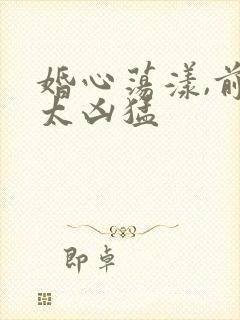 婚心荡漾,前
太凶猛
即卓